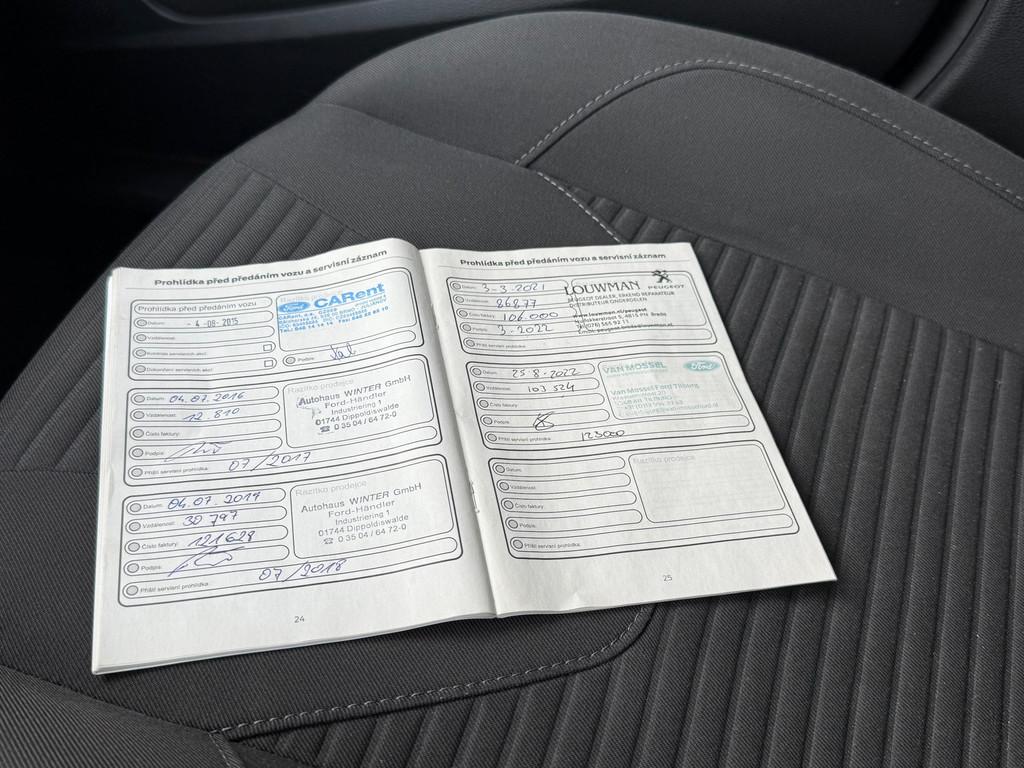 Prohlídka před předáním vozu a servisní záznam
Prohlídka před předáním vozu
Datum: - 4 -08- 2015
Vzdálenost:
Kontrola servisních akcí:
Dokončení servisních akcí:
Ford CARent
CARent, a.s.
Podpis:
Datum: 04.07.2016
Vzdálenost: 12 810
Číslo faktury:
Podpis:
Příští servisní prohlídka: 07/2017
Razítko prodejce
Autohaus WINTER GmbH
Ford-Händler
Industriering 1
01744 Dippoldiswalde
☎ 0 35 04 / 64 72-0
Datum: 04.07.2017
Vzdálenost: 30 797
Číslo faktury: 121628
Podpis:
Příští servisní prohlídka: 07/2018
Razítko prodejce
Autohaus WINTER GmbH
Ford-Händler
Industriering 1
01744 Dippoldiswalde
☎ 0 35 04 / 64 72-0
24
Prohlídka před předáním vozu a servisní záznam
Datum: 3-3-2021
Vzdálenost: 86877
Číslo faktury: 106.000
Podpis: 3-2022
Příští servisní prohlídka:
LOUWMAN PEUGEOT
PEUGEOT DEALER, ERKEND REPARATEUR
DISTRIBUTEUR ONDERDELEN
www.louwman.nl/peugeot
Datum: 25-8-2022
Vzdálenost: 103 524
Číslo faktury:
Podpis:
Příští servisní prohlídka: 123000
VAN MOSSEL Ford
Van Mossel Ford Tilburg
Datum:
Vzdálenost:
Číslo faktury:
Podpis:
Příští servisní prohlídka:
Razítko prodejce
25